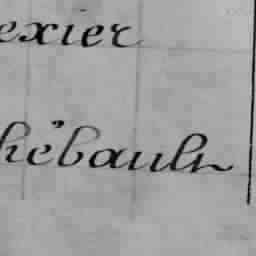 exier
hébault